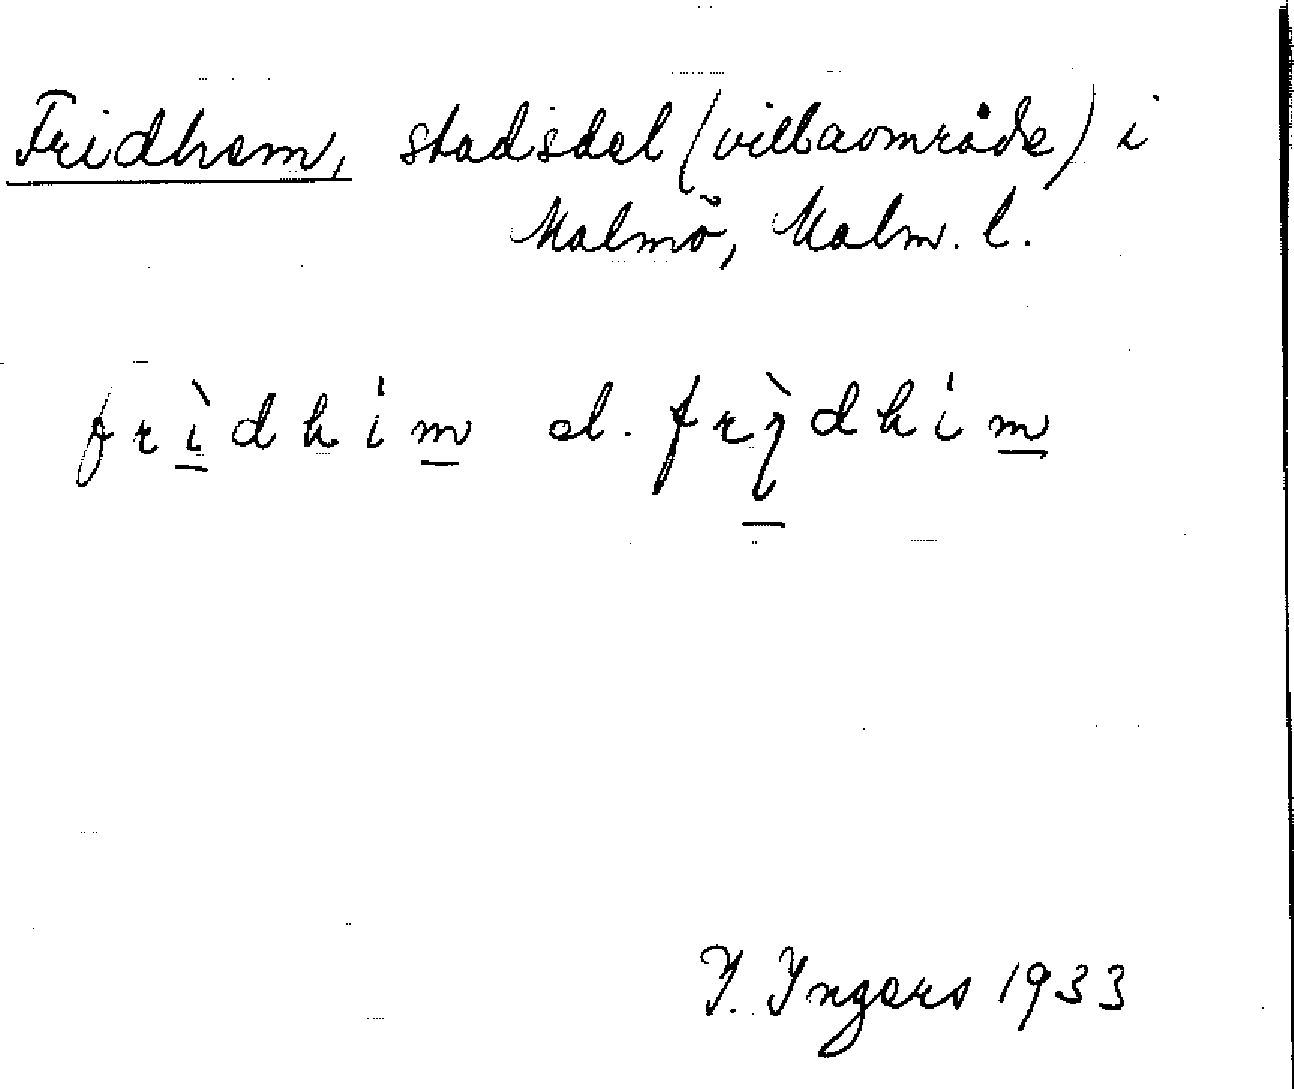 Fridhem, stadsdel (villaområde) i
Malmö, Malm. l.
frìdhím el. frı̨̀dhím
I. Ingers 1933